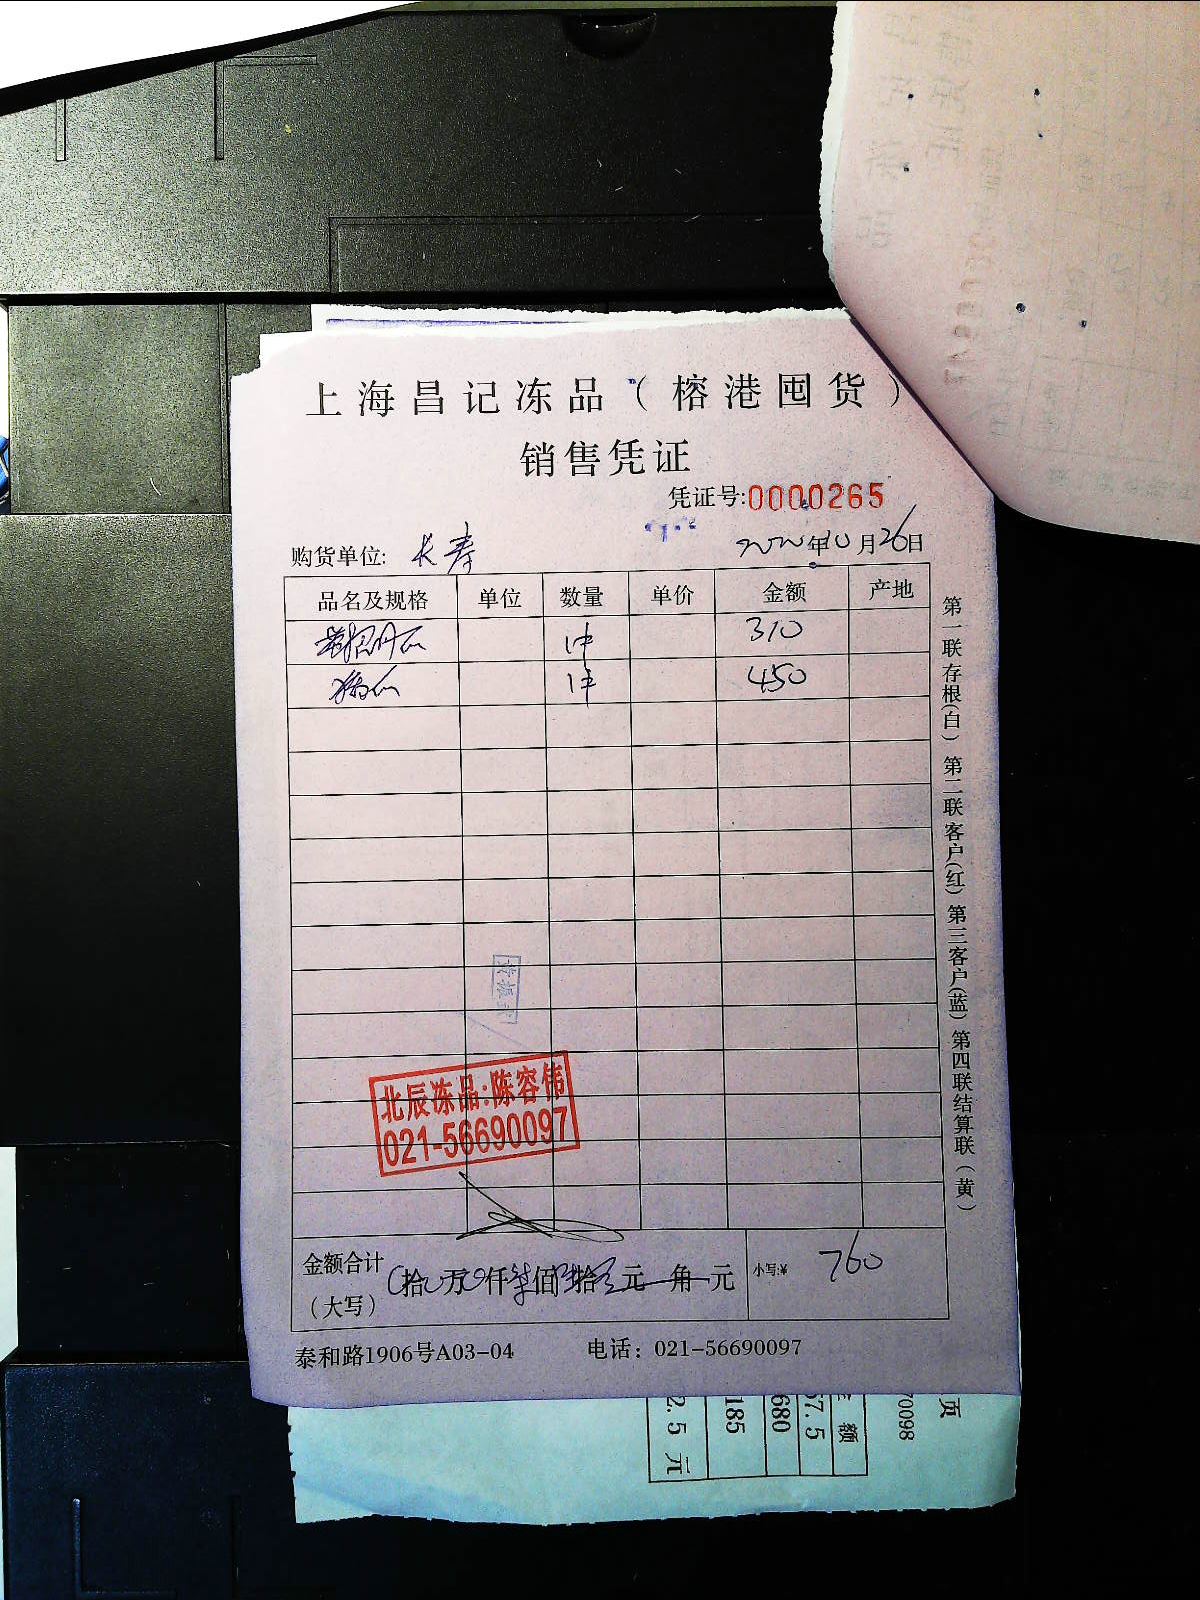 上海昌记冻品（榕港囤货）
销售凭证
凭证号:0000265
购货单位: 长寿 2020年10月26日
品名及规格 单位 数量 单价 金额 产地
1件 310
1件 450
北辰冻品:陈容伟
021-56690097
金额合计（大写） 拾0万0仟柒佰陆拾元角元 小写:¥ 760
泰和路1906号A03-04 电话：021-56690097
第一联存根(白) 第二联客户(红) 第三客户(蓝) 第四联结算联(黄)
页
70098
额
67.5
680
185
2.5 元